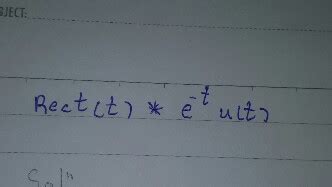 BJECT:
Rect(t) * e^-t u(t)
Solⁿ